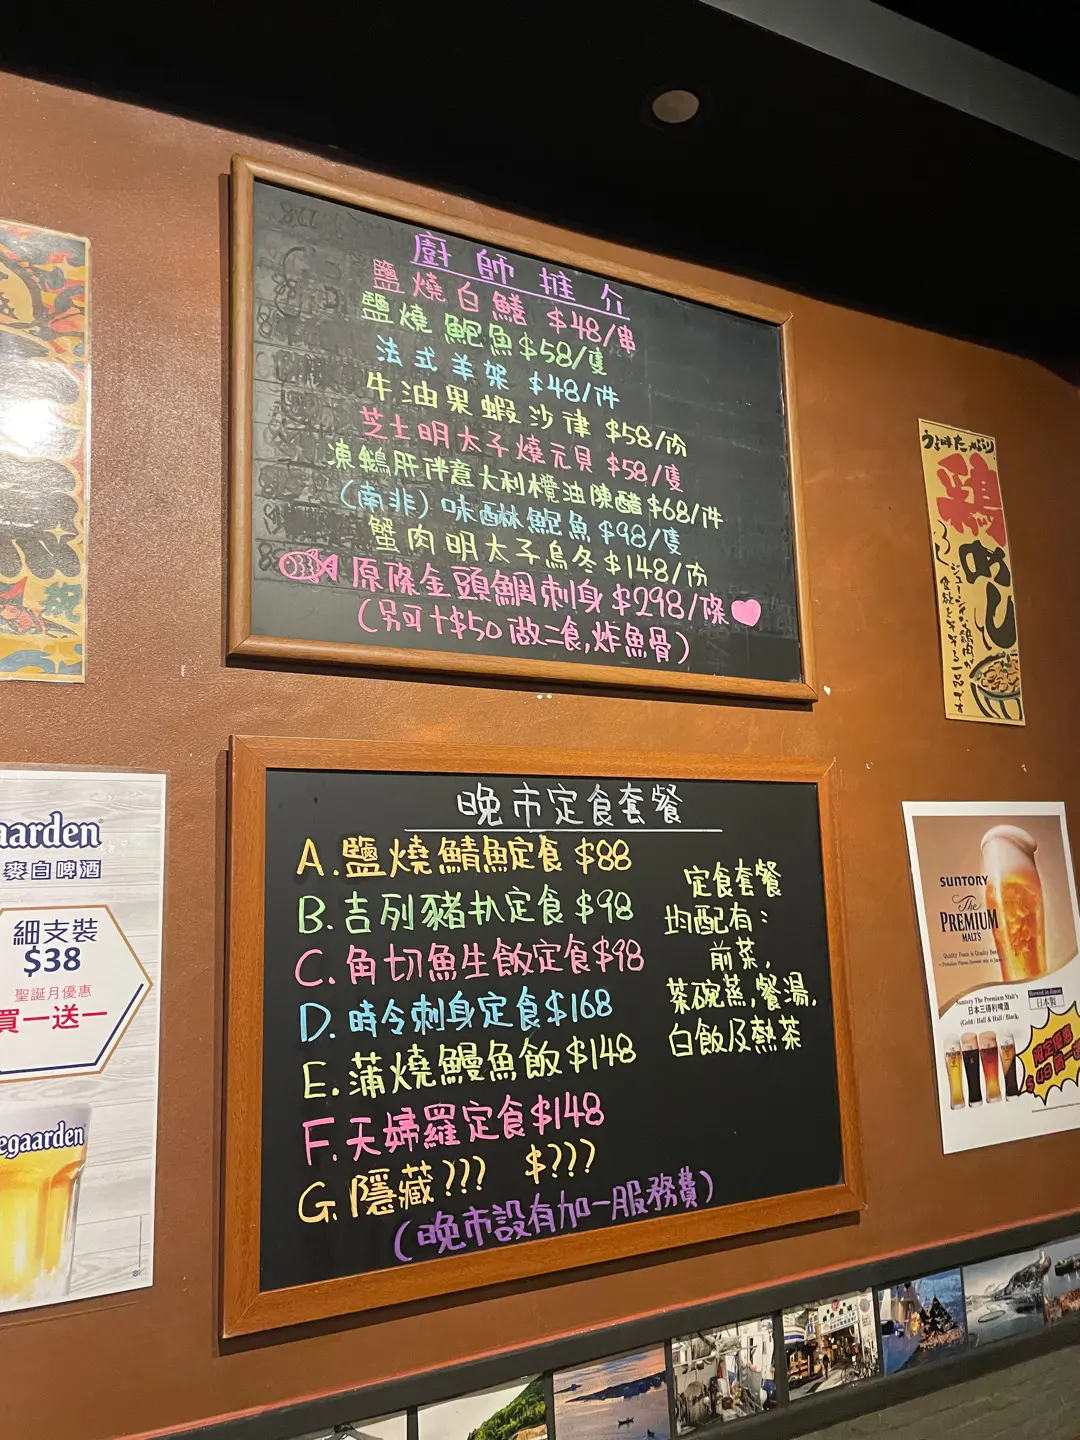 廚師推介
鹽燒白鱔 $48/串
鹽燒鮑魚$58/隻
法式羊架 $48/件
牛油果蝦沙律 $58/份
芝士明太子燒元貝 $58/隻
凍鵝肝伴意大利欖油陳醋 $68/件
(南非) 味醂鮑魚 $98/隻
蟹肉明太子烏冬 $148/份
原條金頭鯛刺身 $298/條
(另可+$50做二食,炸魚骨)
晚市定食套餐
A.鹽燒鯖魚定食 $88
B.吉列豬扒定食 $98
C.角切魚生飯定食$98
D.時令刺身定食$168
E.蒲燒鰻魚飯$148
F.天婦羅定食$148
G.隱藏??? $???
(晚市設有加一服務費)
定食套餐
均配有:
前菜,
茶碗蒸,餐湯,
白飯及熱茶
aarden
麥白啤酒
細支裝
$38
聖誕月優惠
買一送一
egaarden
鶏
めし
SUNTORY
The
PREMIUM
MALT'S
Suntory The Premium Malt's
日本三得利啤酒
(Gold / Half & Half / Black)
Brewed in Japan
日本製